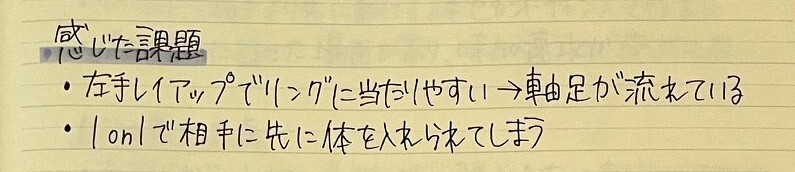 感じた課題
・左手レイアップでリングに当たりやすい→軸足が流れている
・1on1で相手に先に体を入れられてしまう